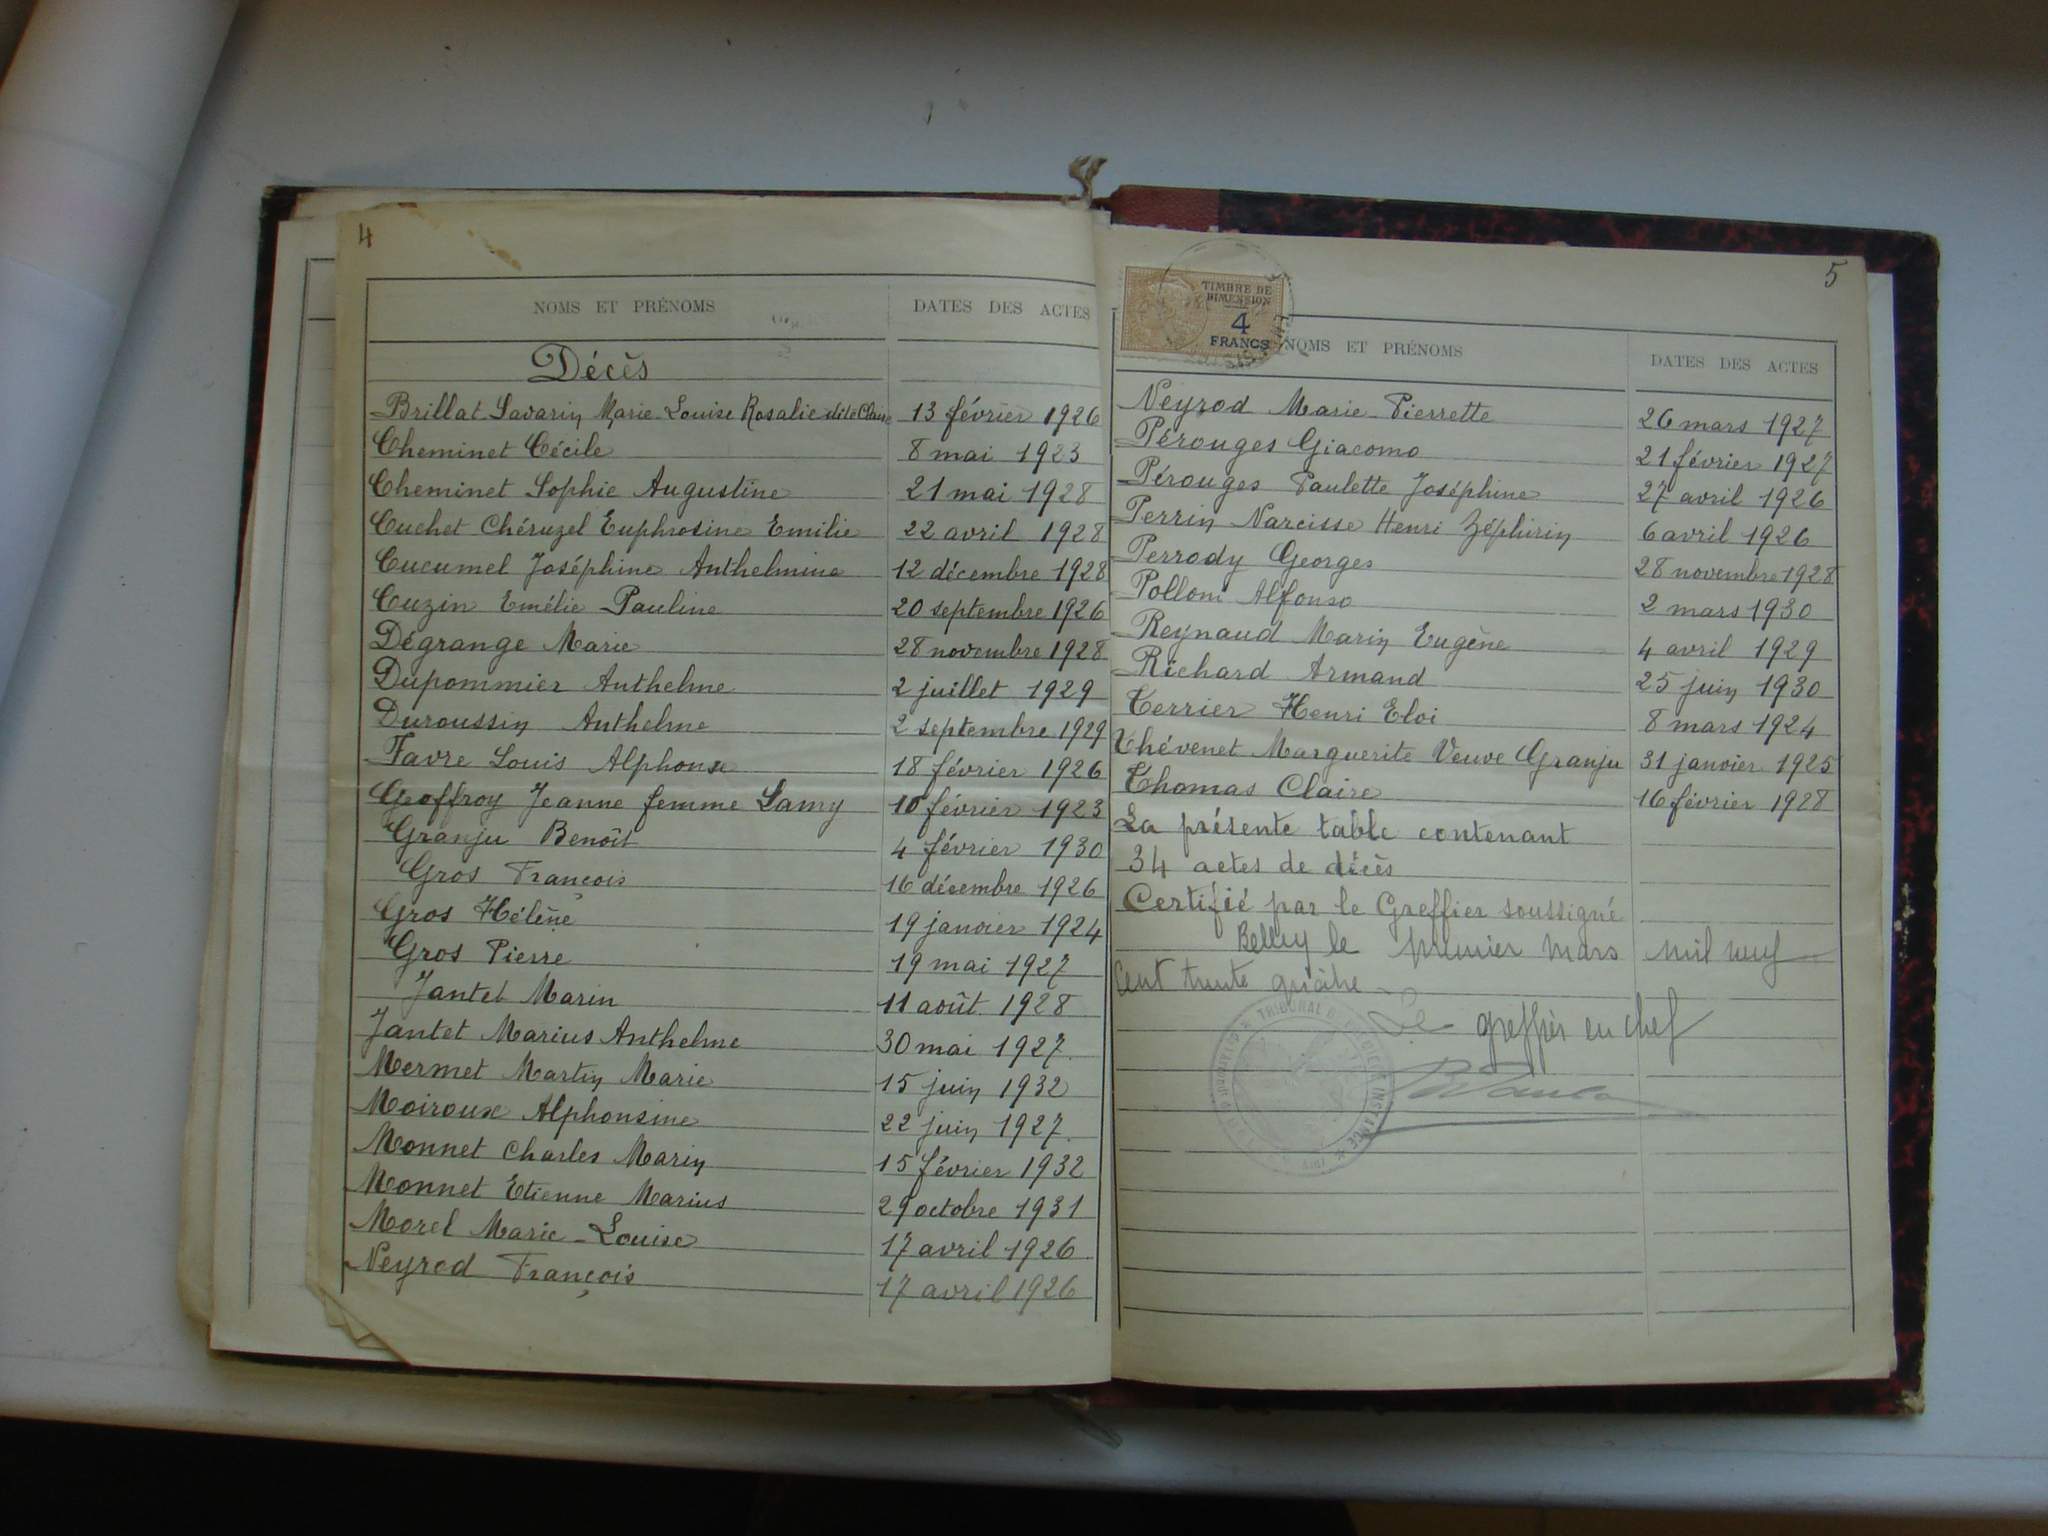 4
NOMS ET PRÉNOMS DATES DES ACTES
Décès
Brillat Savarin Marie Louise Rosalie dite Claire 13 février 1926
Cheminet Cécile 8 mai 1923
Cheminet Sophie Augustine 21 mai 1928
Cuchet Chéruzel Euphrosine Emilie 22 avril 1928
Cucumel Joséphine Anthelmine 12 décembre 1928
Cuzin Emélie Pauline 20 septembre 1926
Dégrange Marie 28 novembre 1928
Dupommier Anthelme 2 juillet 1929
Duroussin Anthelme 2 septembre 1929
Favre Louis Alphonse 18 février 1926
Geoffroy Jeanne femme Lamy 10 février 1923
Granju Benoît 4 février 1930
Gros François 16 décembre 1926
Gros Hélène 19 janvier 1924
Gros Pierre 19 mai 1927
Jantet Marin 11 août 1928
Jantet Marius Anthelme 30 mai 1927
Mermet Martin Marie 15 juin 1932
Moiroux Alphonsine 22 juin 1927
Monnet Charles Marin 15 février 1932
Monnet Etienne Marius 29 octobre 1931
Morel Marie-Louise 17 avril 1926
Neyrod François 17 avril 1926
5
TIMBRE DE
DIMENSION
4
FRANCS
NOMS ET PRÉNOMS DATES DES ACTES
Neyrod Marie Pierrette 26 mars 1927
Pérouges Giacomo 21 février 1927
Pérouges Paulette Joséphine 27 avril 1926
Perrin Narcisse Henri Zéphirin 6 avril 1926
Perrody Georges 28 novembre 1928
Polloni Alfonso 2 mars 1930
Reynaud Marin Eugène 4 avril 1929
Richard Armand 25 juin 1930
Terrier Henri Eloi 8 mars 1924
Thévenet Marguerite Veuve Granju 31 janvier 1925
Thomas Claire 16 février 1928
La présente table contenant
34 actes de décès
Certifié par le Greffier soussigné
Belley le premier mars mil neuf
cent trente quatre
Le greffier en chef
TRIBUNAL DE 1ère INSTANCE